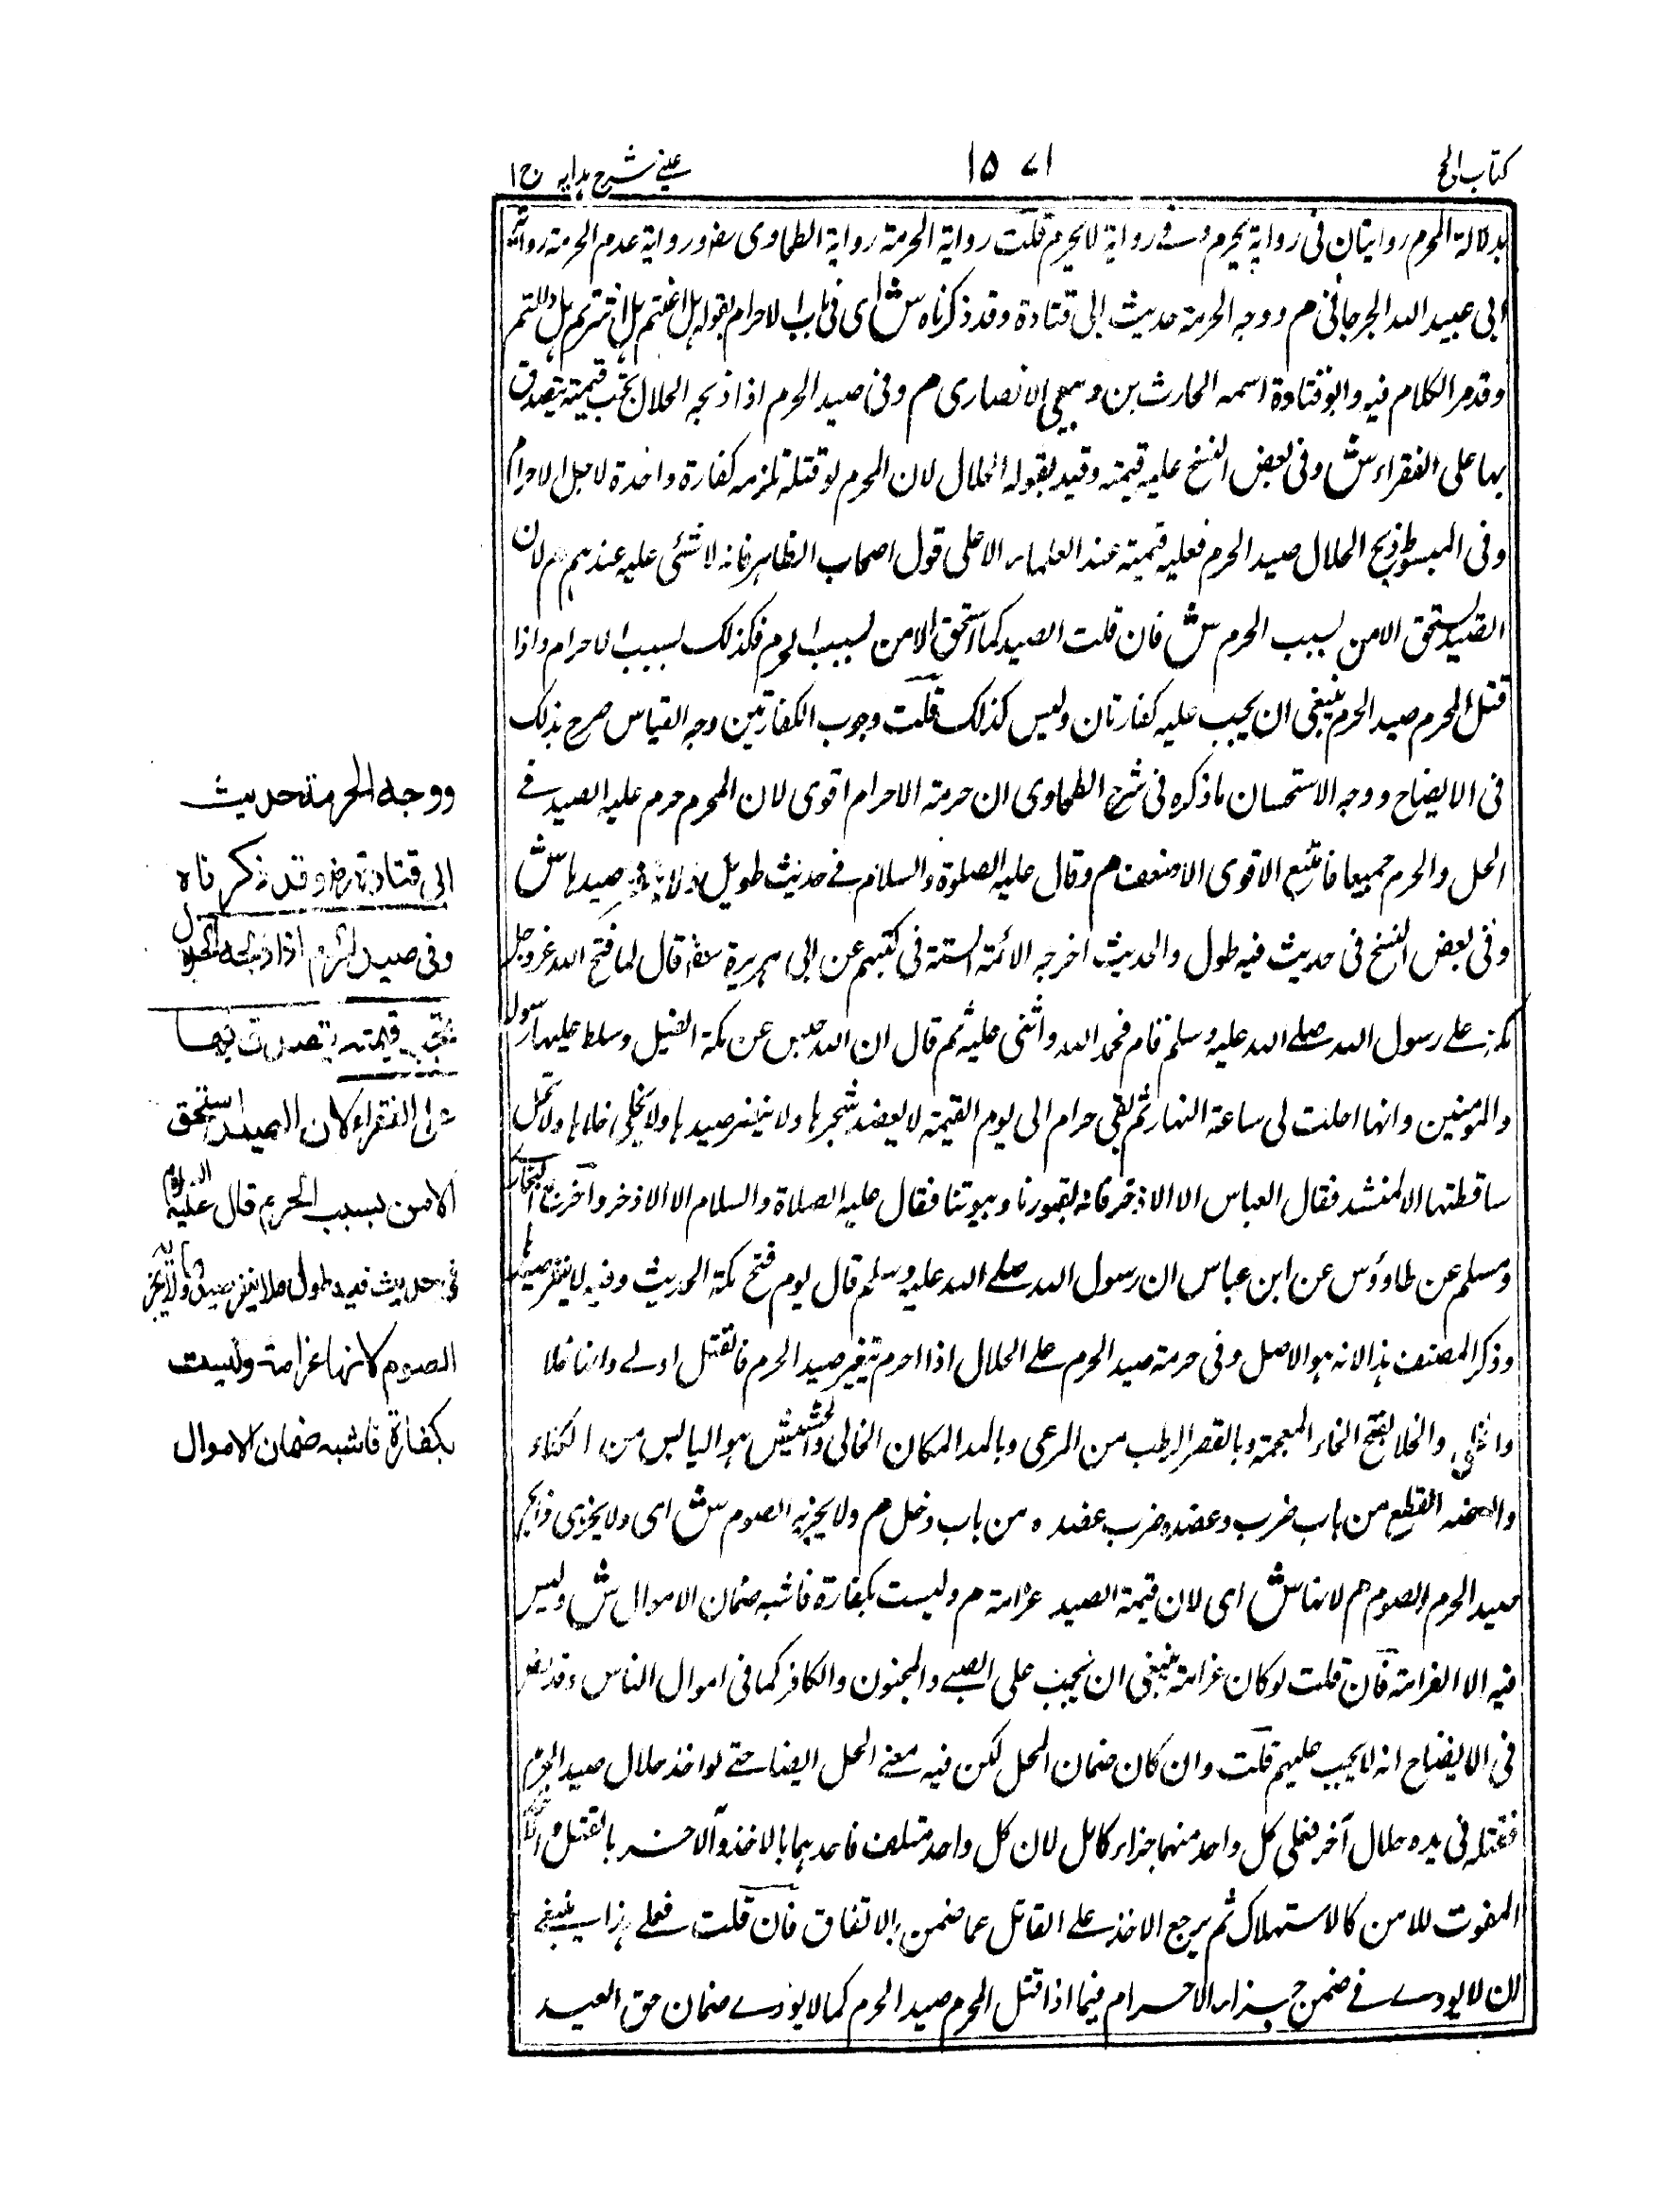 كتاب الحج
١٥٧١
عينى شرح هدايه ج ١
بدلالة المحرم روايتان فى رواية يحرم وفے رواية لا يحرم قلت رواية الحرمة رواية الطحاوى رضـ ورواية عدم الحرمة رواية
ابى عبيد الله الجرجانى م ووجه الحرمة حديث ابى قتادة وقد ذكرناه ش اى فى باب الاحرام بقوله هل اعنتم هل اشرتم هل دللتم
وقد مر الكلام فيه وابو قتادة اسمه الحارث بن ربعى الانصارى م وفى صيد الحرم اذا ذبحه الحلال تجب قيمته يتصدق
بها على الفقراء ش وفى بعض النسخ عليه قيمته وقيد بقوله الحلال لان المحرم لو قتله تلزمه كفارة واحدة لاجل الاحرام
وفى المبسوط ذبح الحلال صيد الحرم فعليه قيمته عند العلماء الا على قول اصحاب الظاهر فانه لا شئى عليه عندهم م لان
الصيد استحق الامن بسبب الحرم ش فان قلت الصيد كما استحق الامن بسبب الحرم فكذلك بسبب الاحرام واذا
قتل المحرم صيد الحرم ينبغى ان يجب عليه كفارتان وليس كذلك قلت وجوب الكفارتين وجه القياس صرح بذلك
فى الايضاح ووجه الاستحسان ما ذكره فى شرح الطحاوى ان حرمة الاحرام اقوى لان المحرم حرم عليه الصيد فے
الحل والحرم جميعا فاستتبع الاقوى الاضعف م وقال عليه الصلوة والسلام فے حديث طويل ولا ينفر صيدها ش
وفى بعض النسخ فى حديث فيه طول والحديث اخرجه الائمة الستة فى كتبهم عن ابى هريرة رضـ قال لما فتح الله عز وجل
مكة على رسول الله صلے الله عليه وسلم قام فحمد الله واثنى عليه ثم قال ان الله حبس عن مكة الفيل وسلط عليها رسوله
والمؤمنين وانها احلت لى ساعة النهار ثم بقى حرام الى يوم القيمة لا يعضد شجرها ولا ينفر صيدها ولا يختلى خلاها ولا تحل
ساقطتها الا لمنشد فقال العباس الا الاذخر فانه لقبورنا وبيوتنا فقال عليه الصلاة والسلام الا الاذخر واخرج البخارى
ومسلم عن طاوؤس عن ابن عباس ان رسول الله صلے الله عليه وسلم قال يوم فتح مكة الحديث وفيه لا ينفر صيدها
وذكر المصنف هذا لانه هو الاصل وفى حرمة صيد الحرم علے الحلال اذا حرم تنفير صيد الحرم فالقتل اولے واما خلا
واختلى والخلا بفتح الخاء المعجمة وبالقصر الرطب من المرعى وبالمد المكان الخالى والحشيش هو اليابس من الكلاء
والعضد القطع من باب ضرب وعضده ضرب عضده من باب دخل م ولا يجزيه الصوم ش اى ولا يجزى ذابح
صيد الحرم الصوم م لانها ش اى لان قيمة الصيد غرامة م وليست بكفارة فاشبه ضمان الاموال ش وليس
فيه الا الغرامة فان قلت لو كان غرامة ينبغى ان تجب على الصبے والمجنون والكافر كما فى اموال الناس وقد نص
فى الايضاح انه لا يجب عليهم قلت وان كان ضمان المحل لكن فيه معنے الحل ايضا حتے لو اخذ حلال صيد الحرم
فقتله فى يده حلال آخر فعلى كل واحد منهما جزاء كامل لان كل واحد متلف فاحدهما بالاخذ والآخر بالقتل
المفوت للامن كالاستهلاك ثم يرجع الاخذ علے القاتل عما ضمن بالاتفاق فان قلت فعلے هذا ينبغے
ان لا يودے فے ضمن جزاء الاحرام فيما اذا قتل المحرم صيد الحرم كما لا يودے ضمان حق العبد
ووجه الحرمة حديث
ابى قتادة رضـ وقد ذكرناه
وفى صيد الحرم اذا ذبحه الحلال
تجب قيمته يتصدق بها
على الفقراء لان الصيد استحق
الامن بسبب الحرم قال عليه السلام
فى حديث فيه طول ولا ينفر صيدها ولا يجزيه
الصوم لانها غرامة وليست
بكفارة فاشبه ضمان الاموال